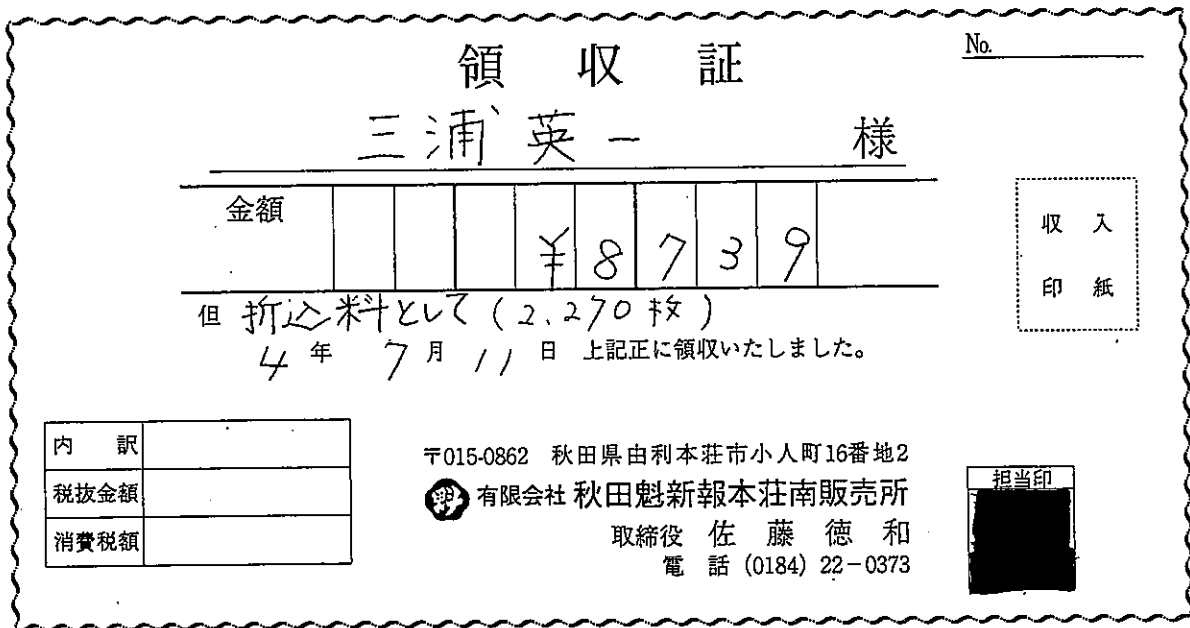 領収証
No.
三浦英一 様
金額 ¥8739
収入
印紙
但 折込料として(2,270枚)
4年7月11日 上記正に領収いたしました。
内訳
税抜金額
消費税額
〒015-0862 秋田県由利本荘市小人町16番地2
有限会社 秋田魁新報本荘南販売所
取締役 佐藤徳和
電話 (0184) 22-0373
担当印